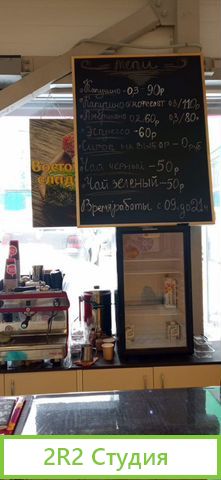 menu
Капучино - 0,3 - 90р
0,3/110р
Американо 0,2.60р 0,3/80р
Эспрессо - 60р
Сироп на выбор - 0 руб
Чай чёрный - 50р
Чай зелёный - 50р
Время работы с 09 до 21ч
Восто
слад
2R2 Студия